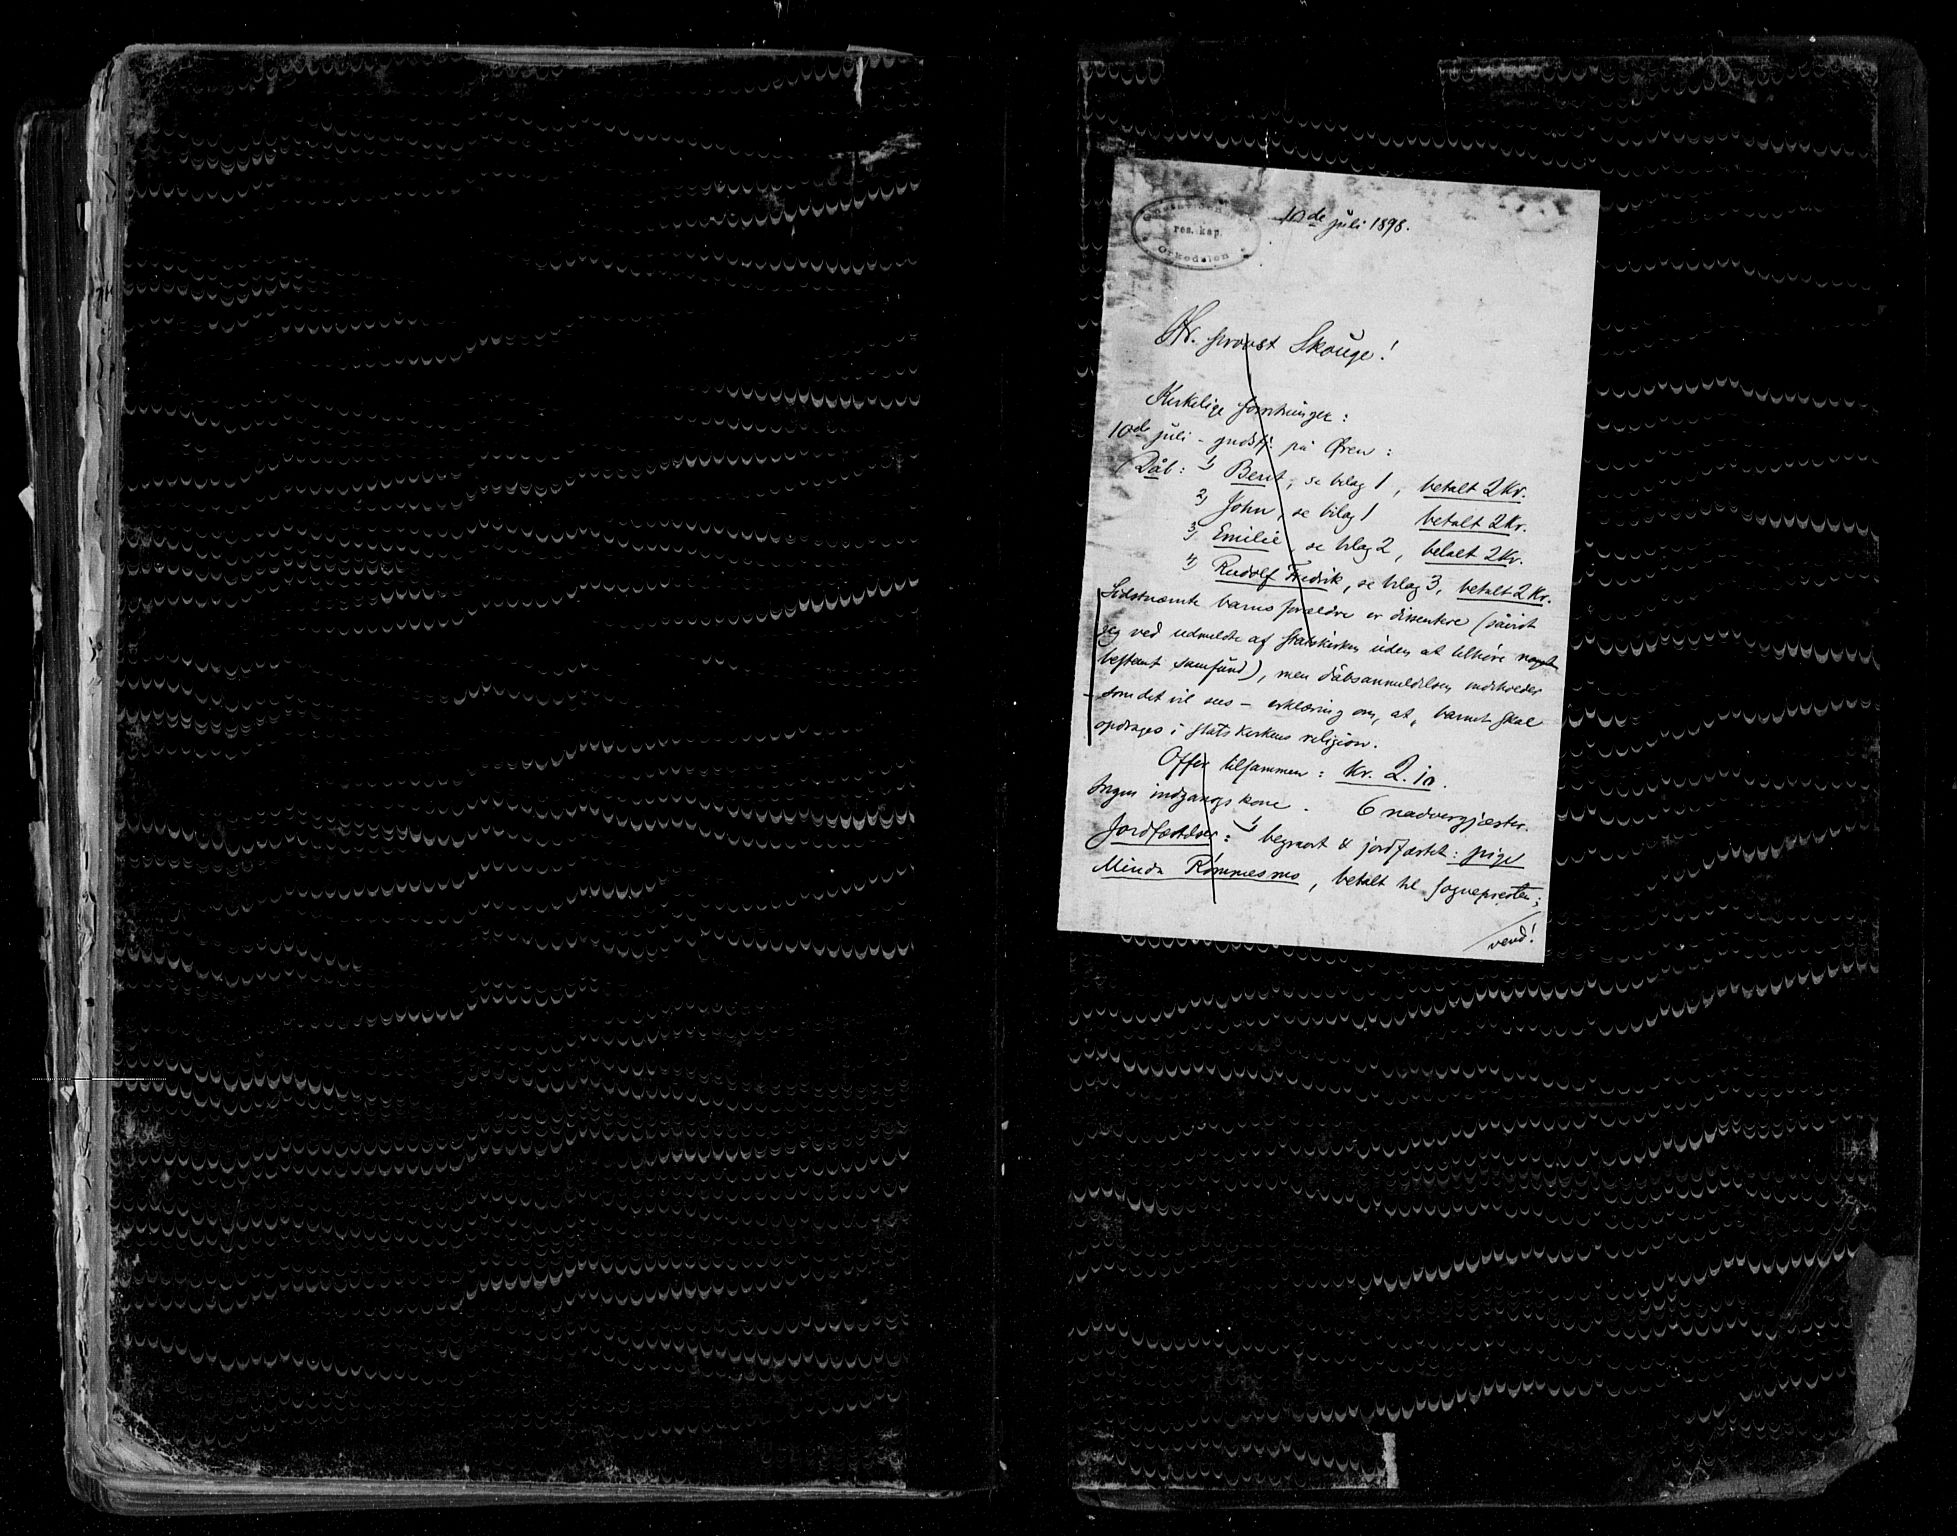 res. kap.
Orkedalen
10de juli 1898.
Hr. provst Skouge!
Kirkelige forretninger:
10de juli - gudstj. på Øren:
Dåb: 1) Berit, se bilag 1, betalt 2 Kr.
2) John, se bilag 1 betalt 2 Kr.
3) Emilie, se bilag 2, betalt 2 Kr.
4) Rudolf Fredrik, se bilag 3, betalt 2 Kr.
Sidstnæmte barns forældre er dissentere (såvidt
jeg ved udmeldte af statskirken uden at tilhøre noget
bestemt samfund), men dåbsanmeldelsen indeholder
- som det vil sees - erklæring om, at barnet skal
opdrages i statskirkens religion.
Offer tilsammen: Kr. 2.10.
Ingen indgangskone. 6 nadvergjæster.
Jordfæstelser: 1) begravet & jordfæstet: pige
Minda Rømmesmo, betalt til sognepresten;
vend!